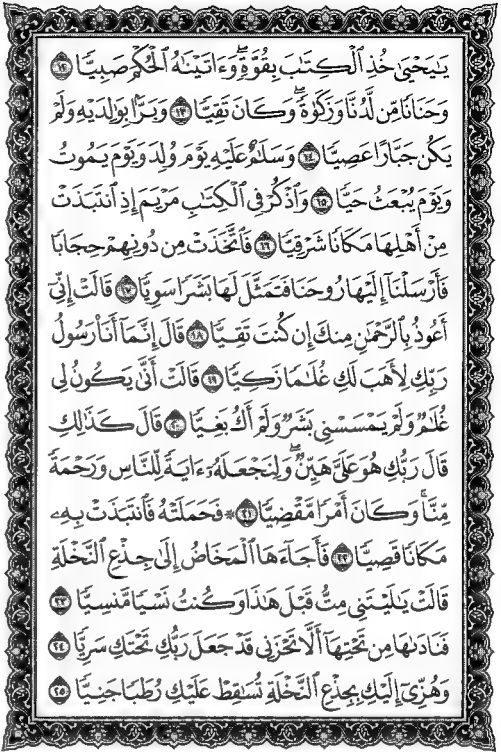 يَٰيَحْيَىٰ خُذِ ٱلْكِتَٰبَ بِقُوَّةٍۖ وَءَاتَيْنَٰهُ ٱلْحُكْمَ صَبِيًّا ۝١٢
وَحَنَانًا مِّن لَّدُنَّا وَزَكَوٰةًۖ وَكَانَ تَقِيًّا ۝١٣ وَبَرًّۢا بِوَٰلِدَيْهِ وَلَمْ
يَكُن جَبَّارًا عَصِيًّا ۝١٤ وَسَلَٰمٌ عَلَيْهِ يَوْمَ وُلِدَ وَيَوْمَ يَمُوتُ
وَيَوْمَ يُبْعَثُ حَيًّا ۝١٥ وَٱذْكُرْ فِى ٱلْكِتَٰبِ مَرْيَمَ إِذِ ٱنتَبَذَتْ
مِنْ أَهْلِهَا مَكَانًا شَرْقِيًّا ۝١٦ فَٱتَّخَذَتْ مِن دُونِهِمْ حِجَابًا
فَأَرْسَلْنَآ إِلَيْهَا رُوحَنَا فَتَمَثَّلَ لَهَا بَشَرًا سَوِيًّا ۝١٧ قَالَتْ إِنِّىٓ
أَعُوذُ بِٱلرَّحْمَٰنِ مِنكَ إِن كُنتَ تَقِيًّا ۝١٨ قَالَ إِنَّمَآ أَنَا۠ رَسُولُ
رَبِّكِ لِأَهَبَ لَكِ غُلَٰمًا زَكِيًّا ۝١٩ قَالَتْ أَنَّىٰ يَكُونُ لِى
غُلَٰمٌ وَلَمْ يَمْسَسْنِى بَشَرٌ وَلَمْ أَكُ بَغِيًّا ۝٢٠ قَالَ كَذَٰلِكِ
قَالَ رَبُّكِ هُوَ عَلَىَّ هَيِّنٌۖ وَلِنَجْعَلَهُۥٓ ءَايَةً لِّلنَّاسِ وَرَحْمَةً
مِّنَّاۚ وَكَانَ أَمْرًا مَّقْضِيًّا ۝٢١ ۞ فَحَمَلَتْهُ فَٱنتَبَذَتْ بِهِۦ
مَكَانًا قَصِيًّا ۝٢٢ فَأَجَآءَهَا ٱلْمَخَاضُ إِلَىٰ جِذْعِ ٱلنَّخْلَةِ
قَالَتْ يَٰلَيْتَنِى مِتُّ قَبْلَ هَٰذَا وَكُنتُ نَسْيًا مَّنسِيًّا ۝٢٣
فَنَادَىٰهَا مِن تَحْتِهَآ أَلَّا تَحْزَنِى قَدْ جَعَلَ رَبُّكِ تَحْتَكِ سَرِيًّا ۝٢٤
وَهُزِّىٓ إِلَيْكِ بِجِذْعِ ٱلنَّخْلَةِ تُسَٰقِطْ عَلَيْكِ رُطَبًا جَنِيًّا ۝٢٥